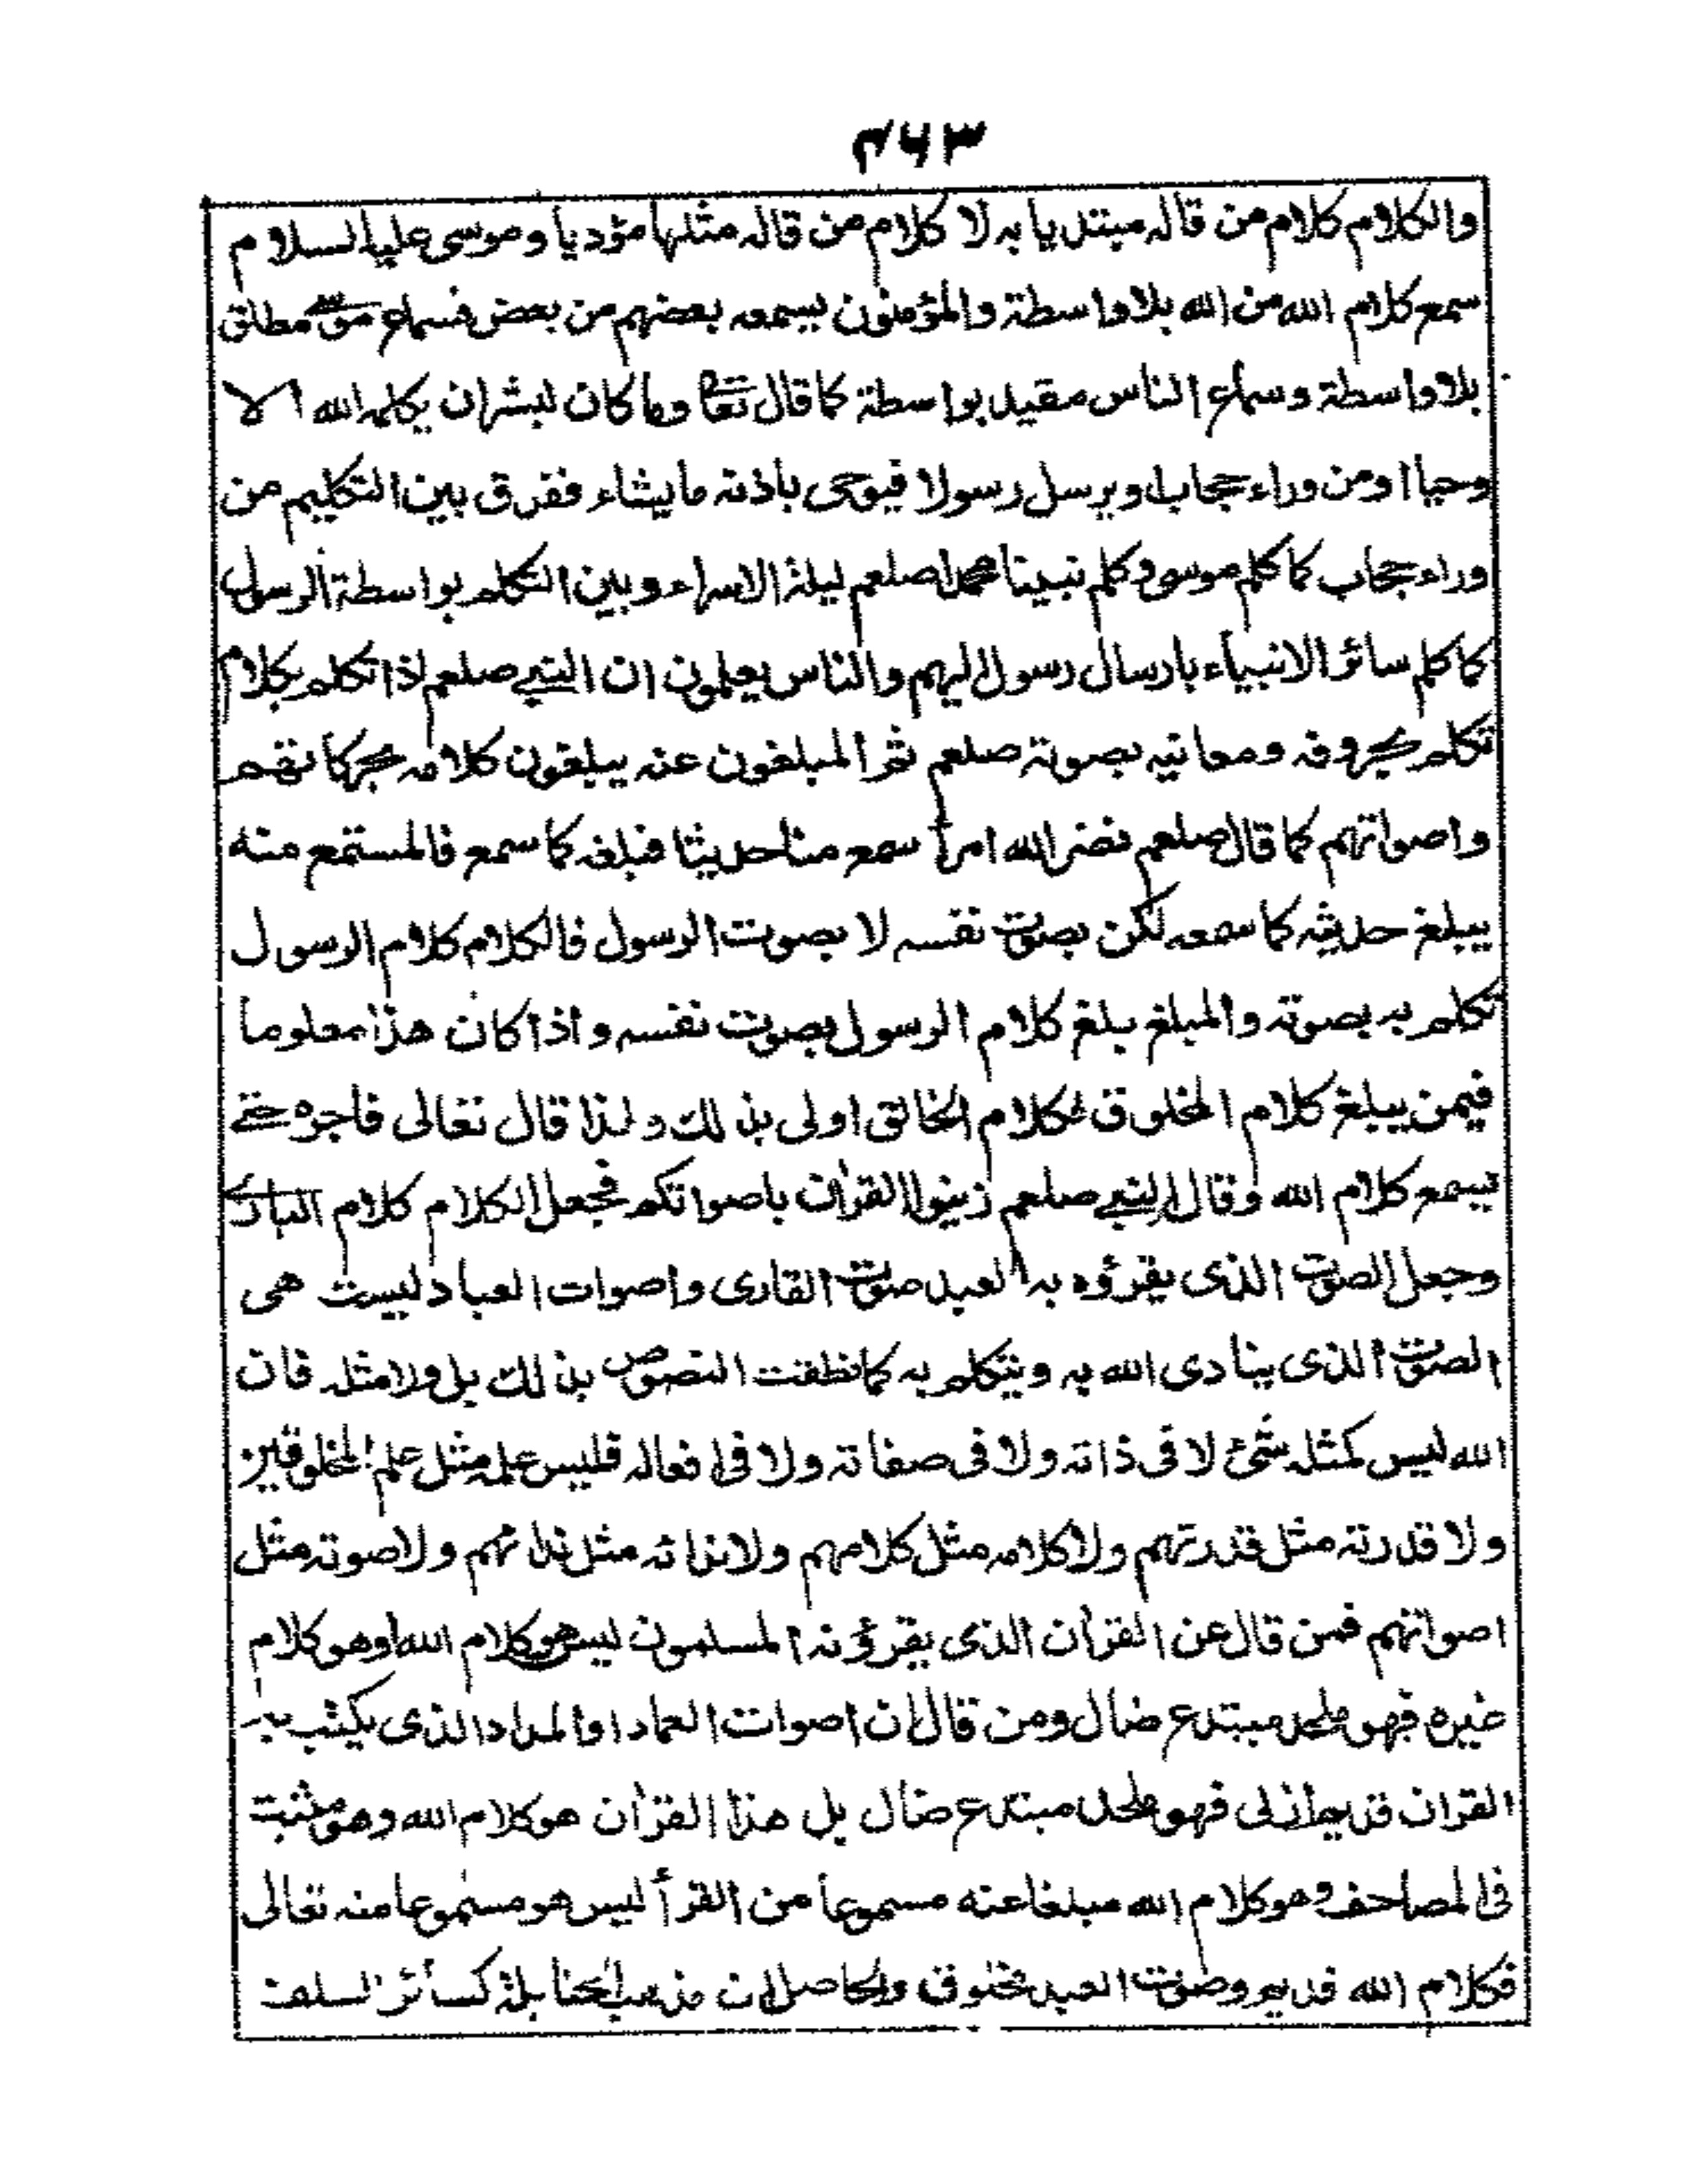 ٣٦٣
والكلام كلام من قاله مبتديا به لا كلام من قاله مثلها مؤديا وموسى عليه السلام
سمع كلام الله من الله بلا واسطة والمؤمنون يسمعه بعضهم من بعض فسماع موسى مطلق
بلا واسطة وسماع الناس مقيد بواسطة كما قال تعالى وما كان لبشر ان يكلمه الله الا
وحيا او من وراء حجاب او يرسل رسولا فيوحى باذنه ما يشاء ففرق بين التكليم من
وراء حجاب كما كلم موسى وكلم نبينا محمدا صلعم ليلة الاسراء وبين التكلم بواسطة الرسول
كما كلم سائر الانبياء بارسال رسول اليهم والناس يعلمون ان النبي صلعم اذا تكلم بكلام
تكلم بحروفه ومعانيه بصوته صلعم ثم المبلغون عنه يبلغون كلامه بحركاتهم
واصواتهم كما قال صلعم نضر الله امرأ سمع منا حديثا فبلغه كما سمع فالمستمع منه
يبلغ حديثه كما سمعه لكن بصوت نفسه لا بصوت الرسول فالكلام كلام الرسول
تكلم به بصوته والمبلغ بلغ كلام الرسول بصوت نفسه واذا كان هذا معلوما
فيمن يبلغ كلام المخلوق فكلام الخالق اولى بذلك ولذا قال تعالى فاجره حتى
يسمع كلام الله وقال النبي صلعم زينوا القرآن باصواتكم فجعل الكلام كلام البارى
وجعل الصوت الذى يقرؤه به العبد صوت القارى واصوات العباد ليست هى
الصوت الذى ينادى الله به ويتكلم به كما نطقت النصوص بذلك بل ولا مثله فان
الله ليس كمثله شئ لا فى ذاته ولا فى صفاته ولا فى افعاله فليس علمه مثل علم المخلوقين
ولا قدرته مثل قدرتهم ولا كلامه مثل كلامهم ولا نداءه مثل ندائهم ولا صوته مثل
اصواتهم فمن قال عن القرآن الذى يقرؤنه المسلمون ليس هو كلام الله او هو كلام
غيره فهو ملحد مبتدع ضال ومن قال ان اصوات العباد او المداد الذى يكتب به
القرآن قديم ازلى فهو ملحد مبتدع ضال بل هذا القرآن هو كلام الله وهو مثبت
فى المصاحف وهو كلام الله مبلغا عنه مسموعا من القرأ ليس هو مسموعا منه تعالى
فكلام الله قديم وصوت العبد مخلوق والحاصل ان مذهب الحنابلة كسائر السلف